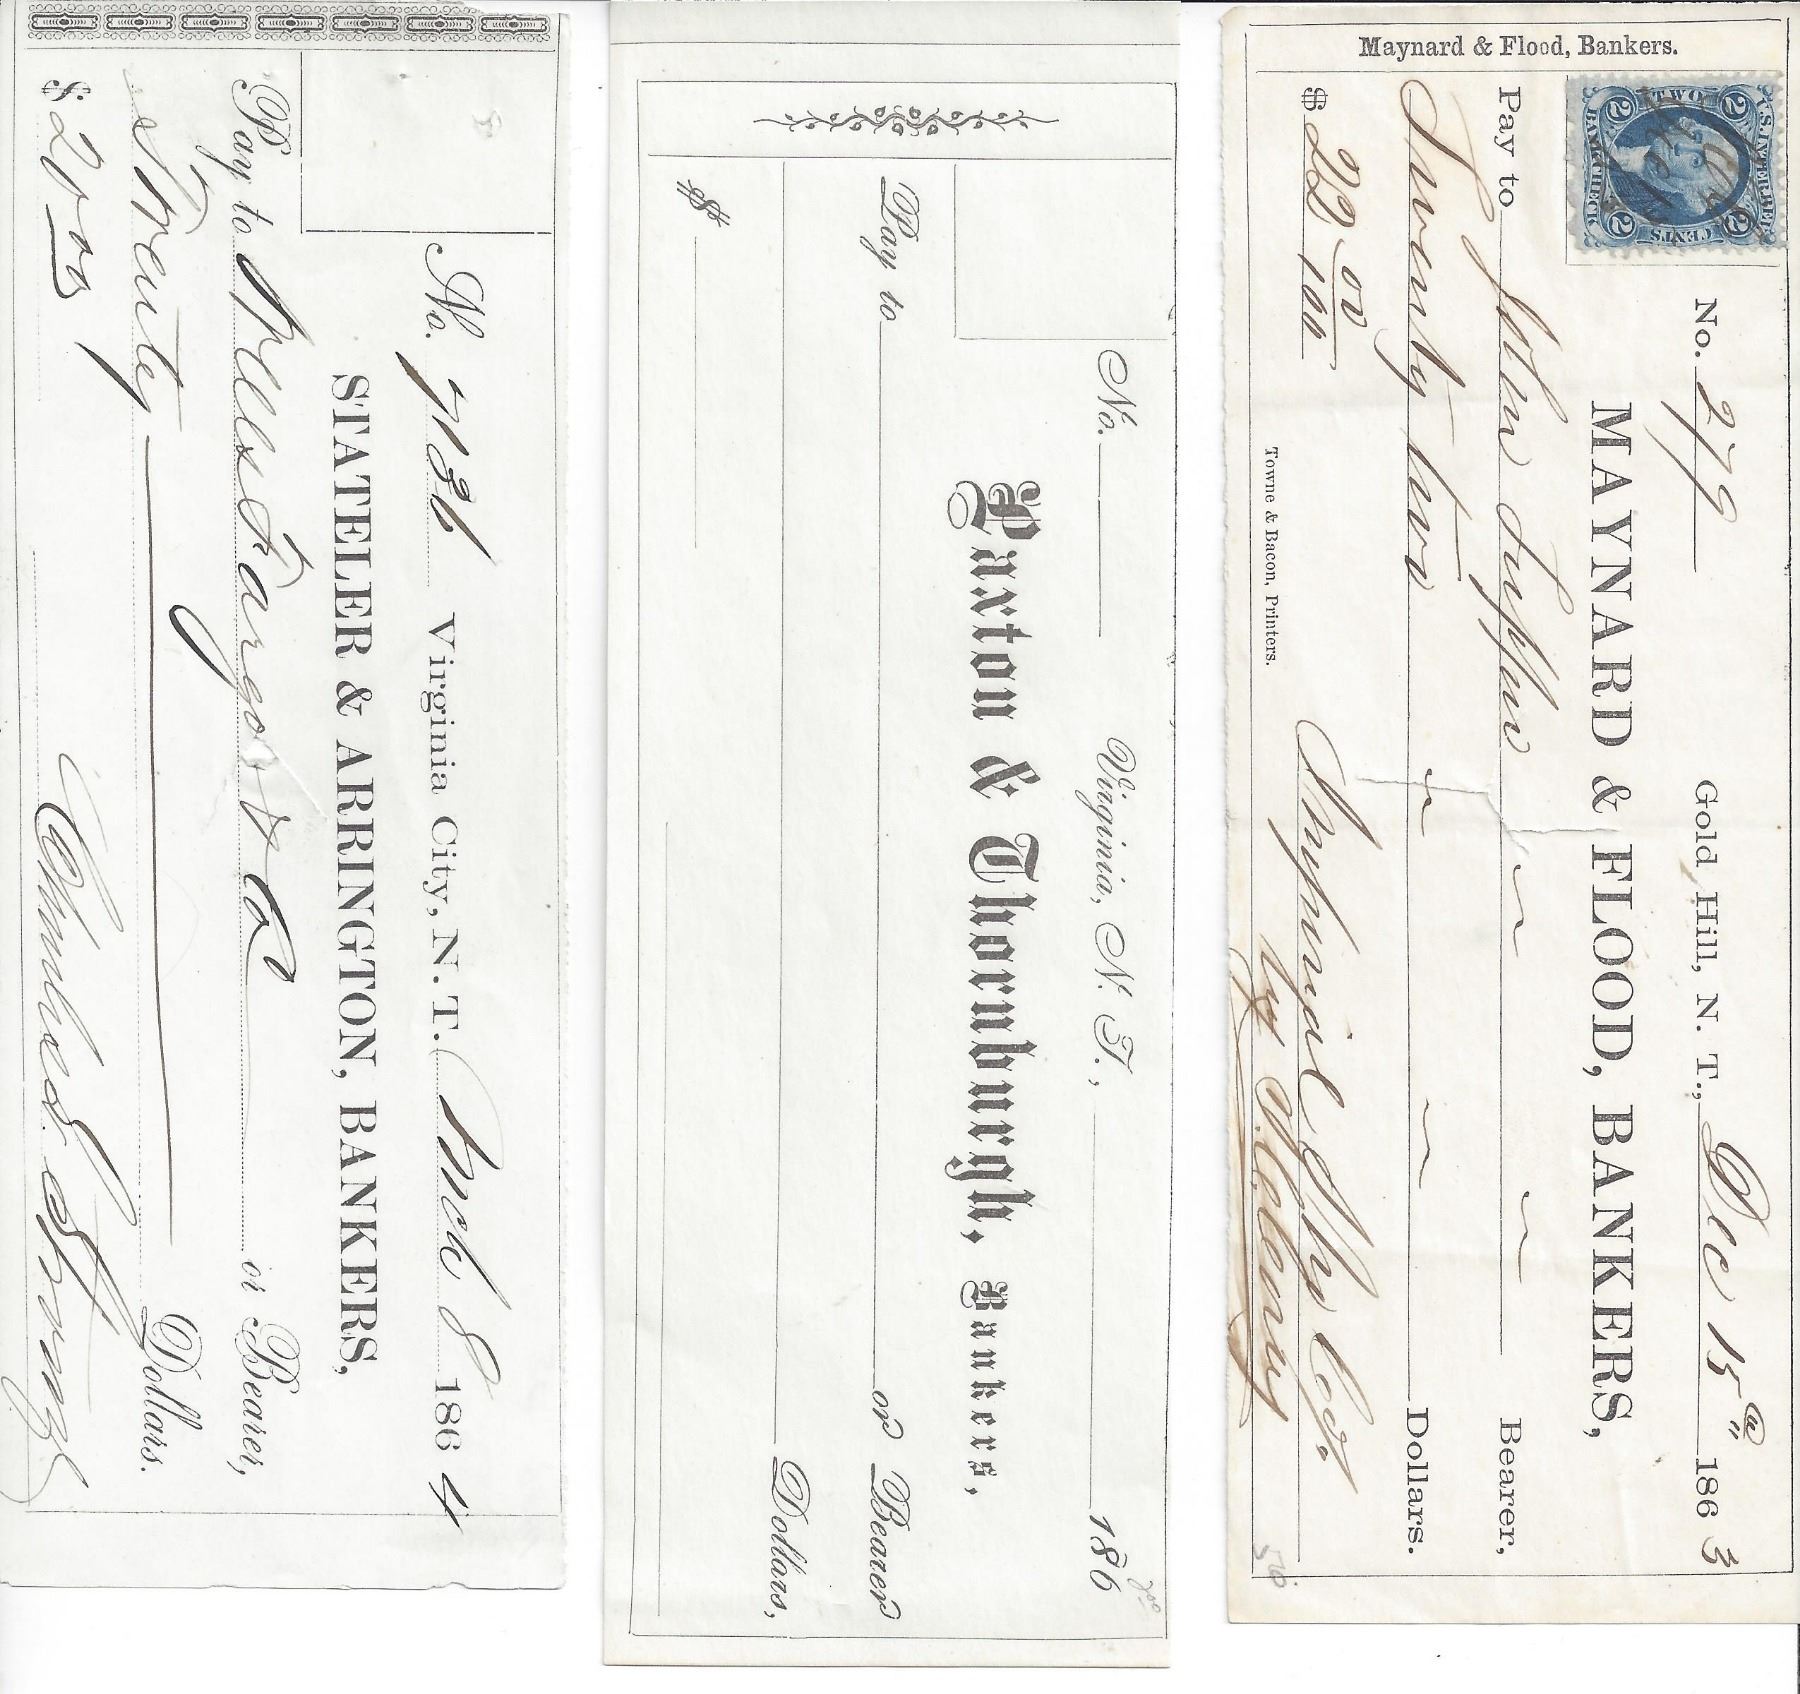 No. 7136 Virginia City, N. T. Mch 8 1864
STATELER & ARRINGTON, BANKERS,
Pay to Wells Fargo & Co or Bearer,
Twenty Dollars.
$ 20 00
No. Virginia, N. T., 186
Paxton & Thornburgh, Bankers,
Pay to or Bearer
Dollars,
$
Maynard & Flood, Bankers.
U.S. INTER. REV.
TWO
2 2
2 2
CENTS
BANK CHECK
No. 279 Gold Hill, N. T., Dec 15th 1863
MAYNARD & FLOOD, BANKERS,
Pay to John Bearer,
Twenty two Dollars.
$ 22 00/100
Towne & Bacon, Printers.
Imperial Co.
by
50